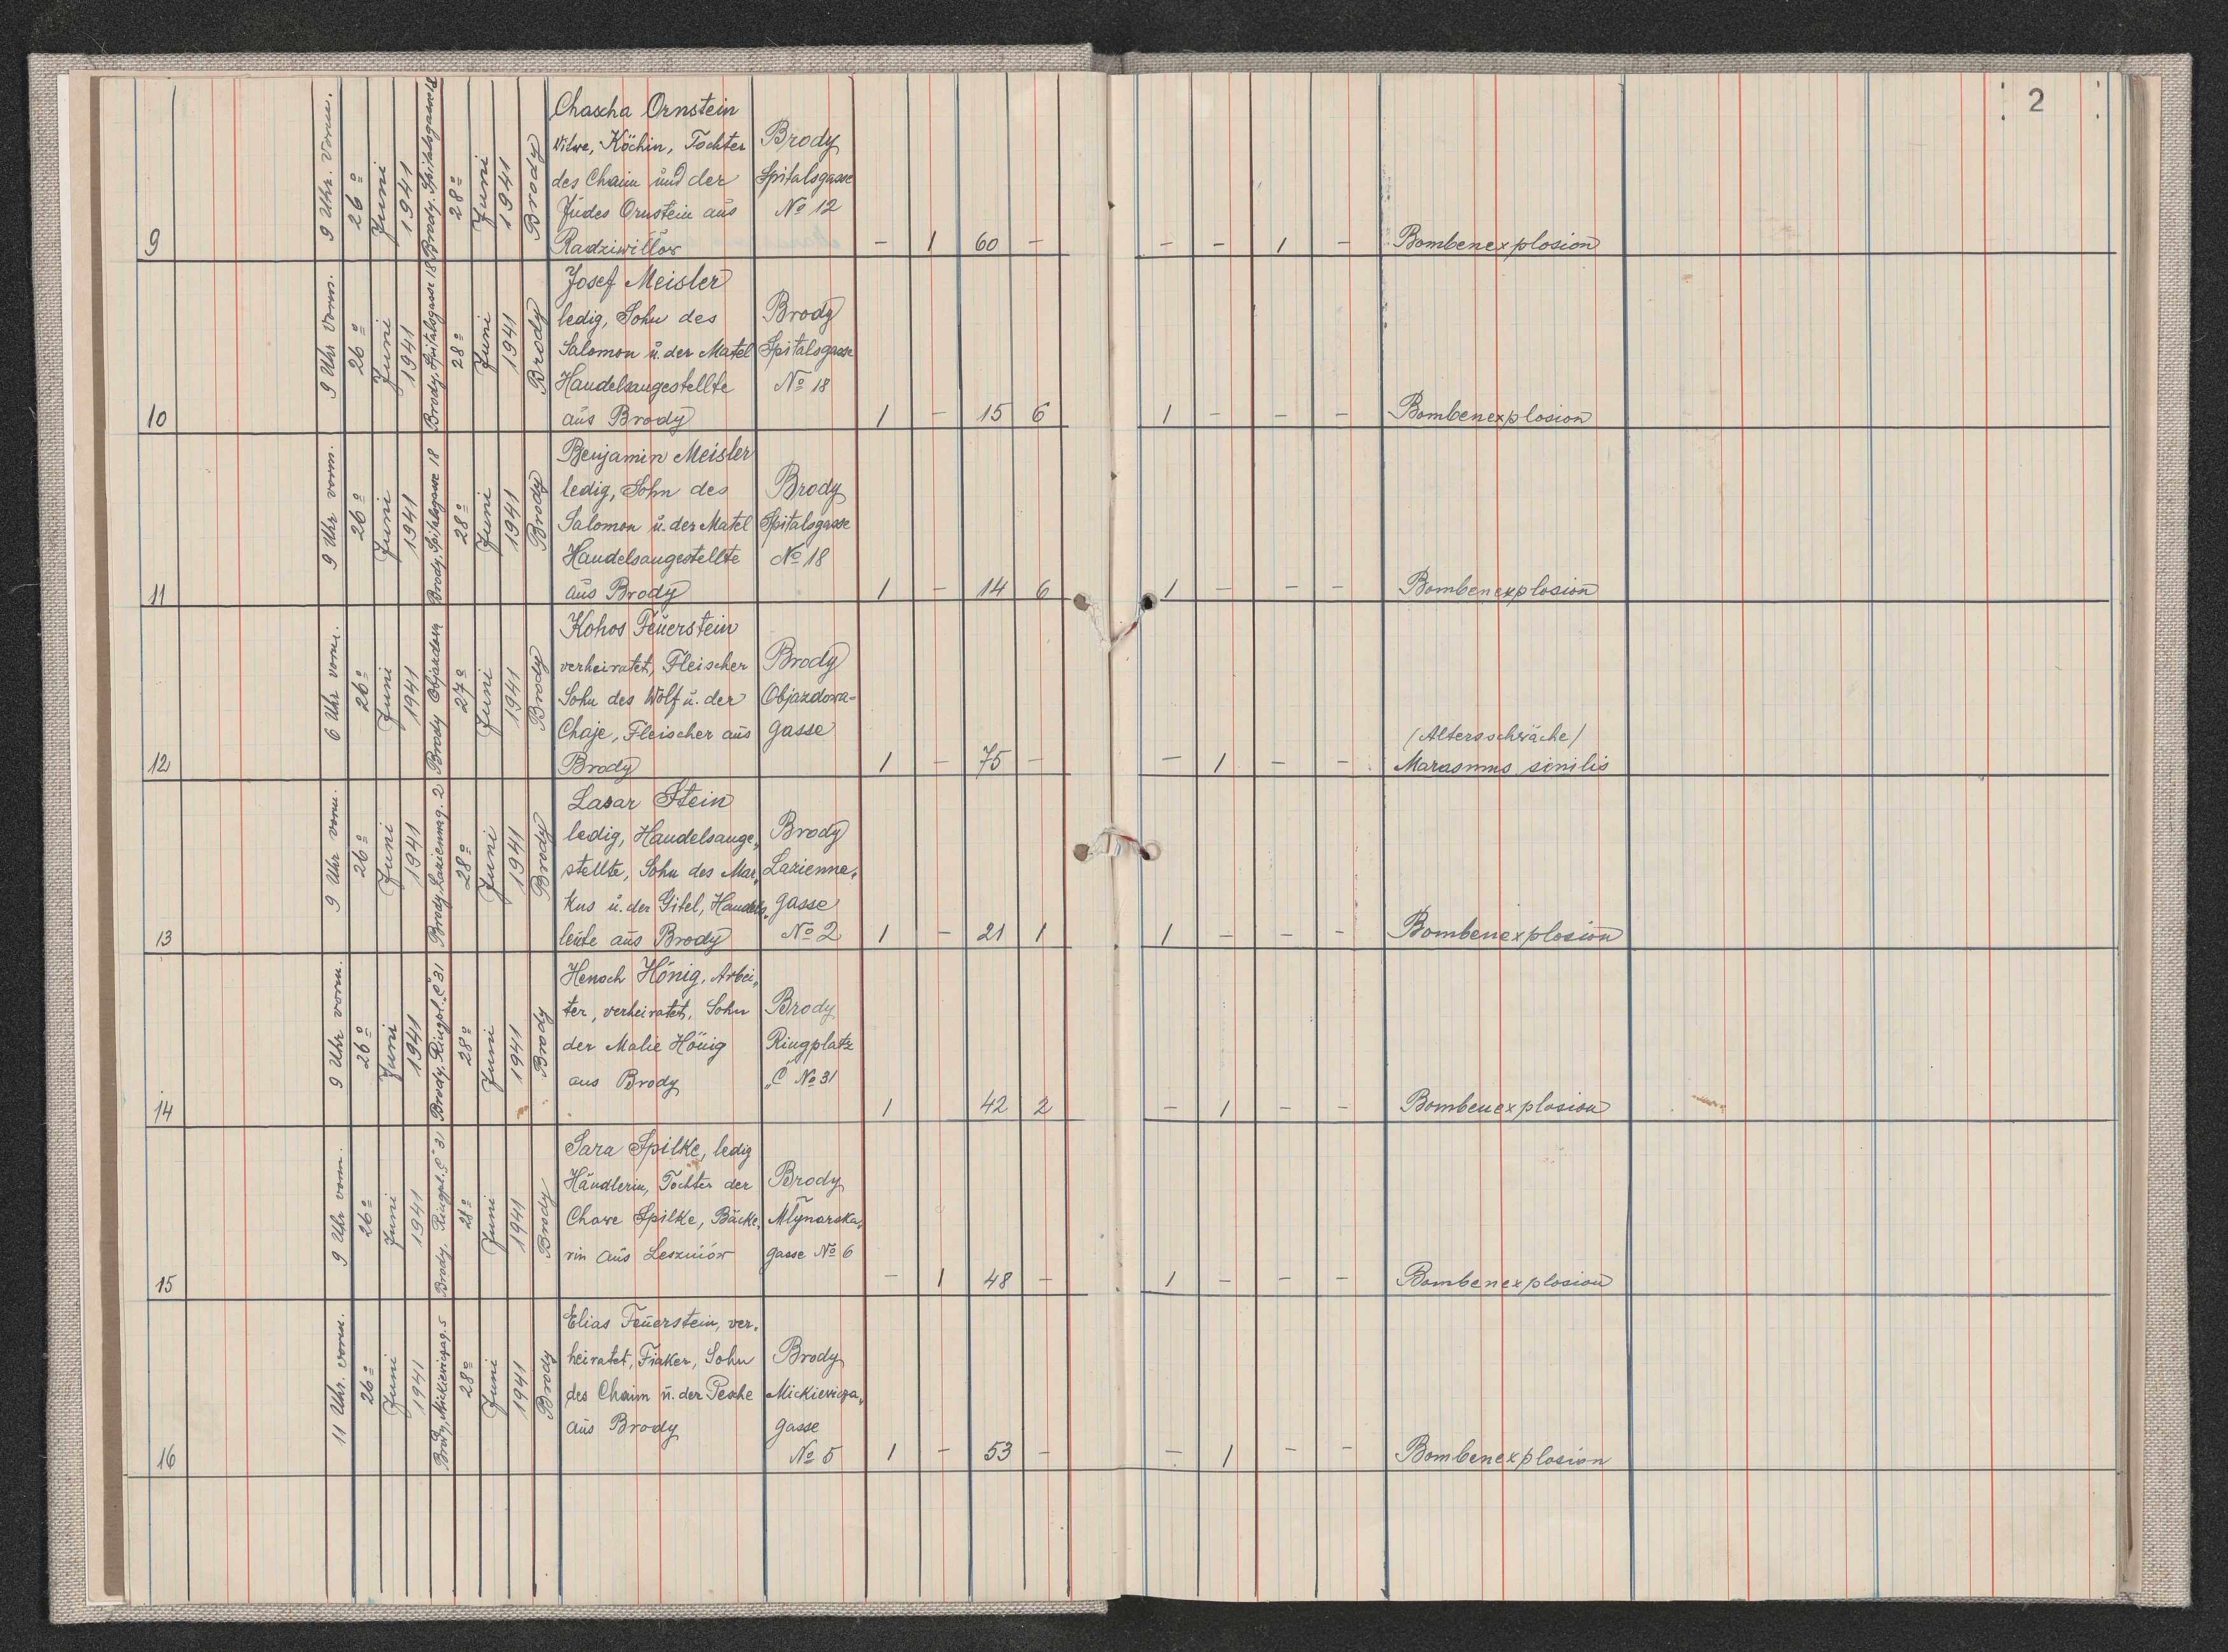 2
9
9 Uhr. vorm.
26º
Juni
1941
Brody, Spitalsgasse 18
28º
Juni
1941
Brody
Chascha Ornstein
Witwe, Köchin, Tochter
des Chaim und der
Judes Ornstein aus
Radziwillow
Brody
Spitalsgasse
Nº 12
- 1 60 -
- - 1 -
Bombenexplosion
10
9 Uhr vorm.
26º
Juni
1941
Brody, Spitalsgasse 18
28º
Juni
1941
Brody
Josef Meisler
ledig, Sohn des
Salomon u. der Matel
Handelsangestellte
aus Brody
Brody
Spitalsgasse
Nº 18
1 - 15 6
1 - - -
Bombenexplosion
11
9 Uhr vorm.
26º
Juni
1941
Brody, Spitalsgasse 18
28º
Juni
1941
Brody
Benjamin Meisler
ledig, Sohn des
Salomon u. der Matel
Handelsangestellte
aus Brody
Brody
Spitalsgasse
Nº 18
1 - 14 6
1 - - -
Bombenexplosion
12
6 Uhr vorm.
26º
Juni
1941
Brody Objazdowa
27º
Juni
1941
Brody
Kohos Feuerstein
verheiratet, Fleischer
Sohn des Wolf u. der
Chaje, Fleischer aus
Brody
Brody
Objazdowa=
gasse
1 - 75 -
- 1 - -
/Altersschwäche/
Marasmus senilis
13
9 Uhr vorm.
26º
Juni
1941
Brody, Lazienna g. 2
28º
Juni
1941
Brody
Lasar Stein
ledig, Handelsange„
stellte, Sohn des Mar„
kus u. der Gitel, Handels„
leute aus Brody
Brody
Lazienna„
gasse
Nº 2
1 - 21 1
1 - - -
Bombenexplosion
14
9 Uhr vorm.
26º
Juni
1941
Brody, Ringpl. „C" 31
28º
Juni
1941
Brody
Henoch Hönig, Arbei„
ter, verheiratet, Sohn
der Malie Hönig
aus Brody
Brody
Ringplatz
„C" Nº 31
1 42 2
- 1 - -
Bombenexplosion
15
9 Uhr vorm.
26º
Juni
1941
Brody, Ringpl. „C" 31
28º
Juni
1941
Brody
Sara Spilke, ledig
Händlerin, Tochter der
Chawe Spilke, Bäcke„
rin aus Leszniów
Brody
Mlynarska„
gasse Nº 6
- 1 48 -
1 - - -
Bombenexplosion
16
11 Uhr. vorm.
26º
Juni
1941
Brody, Mickiewicza g. 5
28º
Juni
1941
Brody
Elias Feuerstein, ver„
heiratet, Fiaker, Sohn
des Chaim u. der Pesche
aus Brody
Brody
Mickiewicza„
gasse
Nº 5
1 - 53 -
- 1 - -
Bombenexplosion